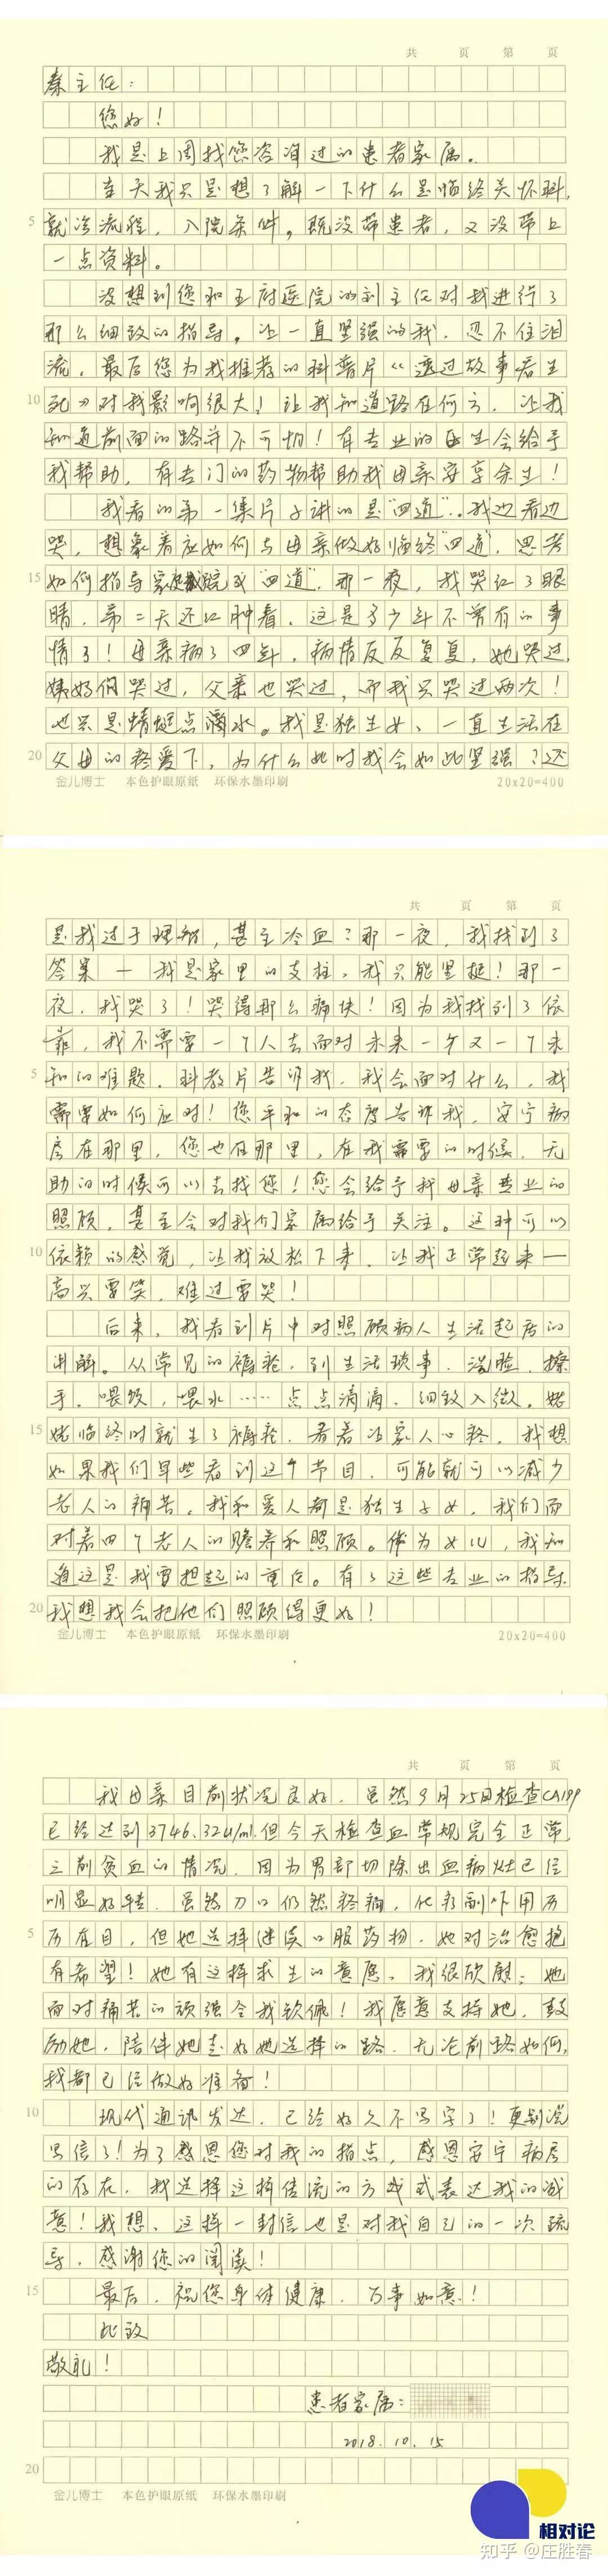 共 页 第 页
秦主任：
您好！
我是上周找您咨询过的患者家属。
本天我只是想了解一下什么是临终关怀科，
5 就诊流程，入院条件，既没带患者，又没带上
一点资料。
没想到您和王府医院的刘主任对我进行了
那么细致的指导。让一直坚强的我，忍不住泪
流，最后您为我推荐的科普片《透过故事看生
10 死》对我影响很大！让我知道路在何方，让我
知道前面的路并不可怕！有专业的医生会给予
我帮助，有专门的药物帮助我母亲安享余生！
我看的第一集片子讲的是"四道"。我边看边
哭，想象着应如何与母亲做好临终"四道"，思考
15 如何指导家庭成员完成"四道"，那一夜，我哭红了眼
睛，第二天还红肿着，这是多少年不曾有的事
情了！母亲病了四年，病情反反复复，她哭过，
姨妈们哭过，父亲也哭过，而我只哭过两次！
也只是蜻蜓点滴水。我是独生女，一直生活在
20 父母的疼爱下，为什么此时我会如此坚强？还
金儿博士 本色护眼原纸 环保水墨印刷 20x20=400
共 页 第 页
是我过于理智，甚至冷血？那一夜，我找到了
答案—我是家里的支柱，我只能坚挺！那一
夜，我哭了！哭得那么痛快！因为我找到了依
靠，我不需要一个人去面对未来一个又一个未
5 知的难题，科教片告诉我，我会面对什么，我
需要如何应对！您平和的态度告诉我，安宁病
房在那里，您也在那里，在我需要的时候，无
助的时候可以去找您！您会给予我母亲专业的
照顾，甚至会对我们家属给予关注。这种可以
10 依赖的感觉，让我放松下来，让我正常起来—
高兴要笑，难过要哭！
后来，我看到片中对照顾病人生活起居的
讲解。从常见的褥疮，到生活琐事，洗脸，擦
手，喂饭，喂水……点点滴滴，细致入微，姥
15 姥临终时就生了褥疮，看着让家人心疼，我想
如果我们早些看到这个节目，可能就可以减少
老人的痛苦。我和爱人都是独生子女，我们面
对着四个老人的赡养和照顾。做为女儿，我知
道这是我要担起的重任。有了这些专业的指导
20 我想我会把他们照顾得更好！
金儿博士 本色护眼原纸 环保水墨印刷 20x20=400
共 页 第 页
我母亲目前状况良好，虽然9月25日检查CA199
已经达到3746.32u/ml.但今天检查血常规完全正常，
之前贫血的情况，因为胃部切除出血病灶已经
明显好转，虽然刀口仍然疼痛，化疗副作用历
5 历在目，但她选择继续口服药物，她对治愈抱
有希望！她有这样求生的意愿，我很欣慰；她
面对痛苦的顽强令我钦佩！我愿意支持她，鼓
励她，陪伴她走好她选择的路，无论前路如何，
我都已经做好准备！
10 现代通讯发达，已经好久不写字了！更别说
写信了！为了感恩您对我的指点，感恩安宁病房
的存在，我选择这样传统的方式表达我的诚
意！我想，这样一封信也是对我自己的一次疏
导，感谢您的阅读！
15 最后，祝您身体健康，万事如意！
此致
敬礼！
患者家属：
2018.10.15
20
金儿博士 本色护眼原纸 环保水墨印刷
相对论
知乎 @庄胜春